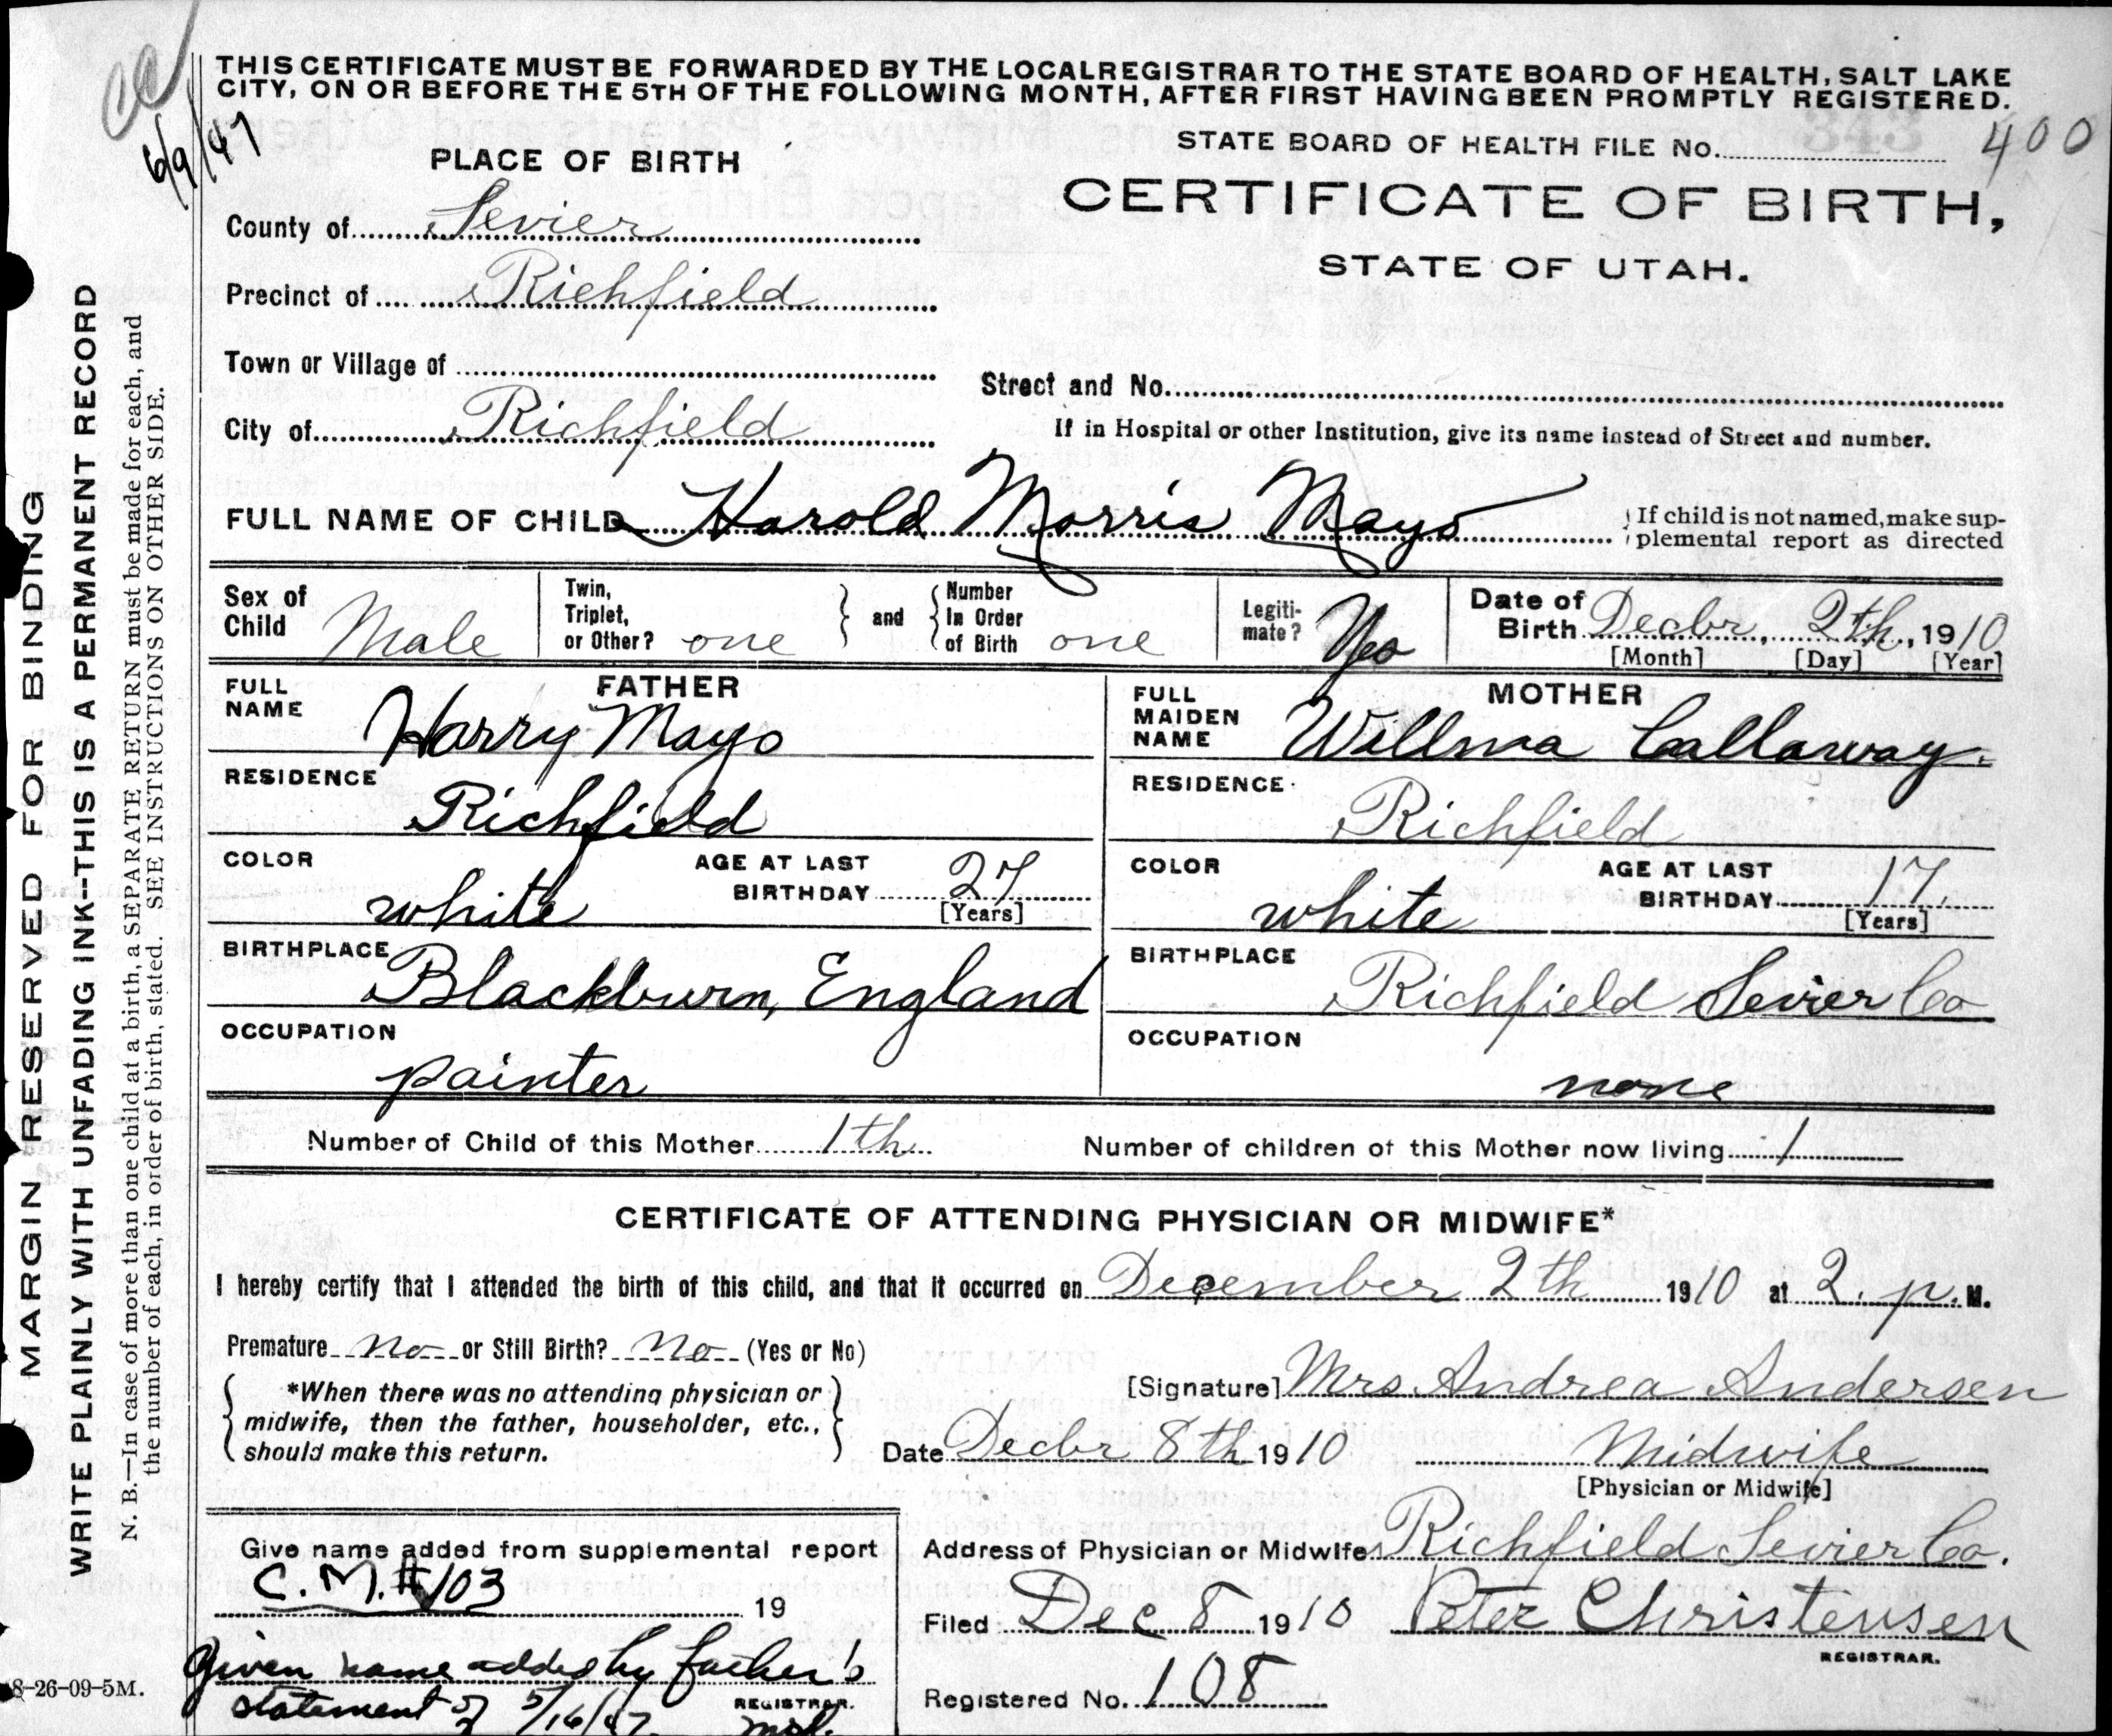 cc
6/9/47
THIS CERTIFICATE MUST BE FORWARDED BY THE LOCAL REGISTRAR TO THE STATE BOARD OF HEALTH, SALT LAKE
CITY, ON OR BEFORE THE 5TH OF THE FOLLOWING MONTH, AFTER FIRST HAVING BEEN PROMPTLY REGISTERED.
STATE BOARD OF HEALTH FILE No. 400
PLACE OF BIRTH
CERTIFICATE OF BIRTH,
STATE OF UTAH.
County of Sevier
Precinct of Richfield
Town or Village of
Street and No.
City of Richfield
If in Hospital or other Institution, give its name instead of Street and number.
FULL NAME OF CHILD Harold Morris Mayo
If child is not named, make sup-
plemental report as directed
Sex of
Child Male
Twin,
Triplet,
or Other? one
and
Number
In Order
of Birth one
Legiti-
mate? Yes
Date of
Birth Decbr, 2th, 1910
[Month] [Day] [Year]
FATHER
FULL
NAME Harry Mayo
RESIDENCE
Richfield
COLOR
white
AGE AT LAST
BIRTHDAY 27
[Years]
BIRTHPLACE
Blackburn, England
OCCUPATION
painter
MOTHER
FULL
MAIDEN
NAME Willma Callaway.
RESIDENCE
Richfield
COLOR
white
AGE AT LAST
BIRTHDAY 17.
[Years]
BIRTHPLACE
Richfield Sevier Co
OCCUPATION
none
Number of Child of this Mother 1th
Number of children of this Mother now living 1
CERTIFICATE OF ATTENDING PHYSICIAN OR MIDWIFE*
I hereby certify that I attended the birth of this child, and that it occurred on December 2th 1910 at 2. p. M.
Premature no or Still Birth? No (Yes or No)
*When there was no attending physician or
midwife, then the father, householder, etc.,
should make this return.
[Signature] Mrs Andrea Andersen
Date Decbr 8th 1910
Midwife
[Physician or Midwife]
Give name added from supplemental report
C. M. # 103
19
Given name added by father's
statement of 5/16/47.
REGISTRAR.
Address of Physician or Midwife Richfield Sevier Co.
Filed Dec 8 1910 Peter Christensen
REGISTRAR.
Registered No. 108
8-26-09-5M.
MARGIN RESERVED FOR BINDING
WRITE PLAINLY WITH UNFADING INK--THIS IS A PERMANENT RECORD
N. B.—In case of more than one child at a birth, a SEPARATE RETURN must be made for each, and
the number of each, in order of birth, stated. SEE INSTRUCTIONS ON OTHER SIDE.